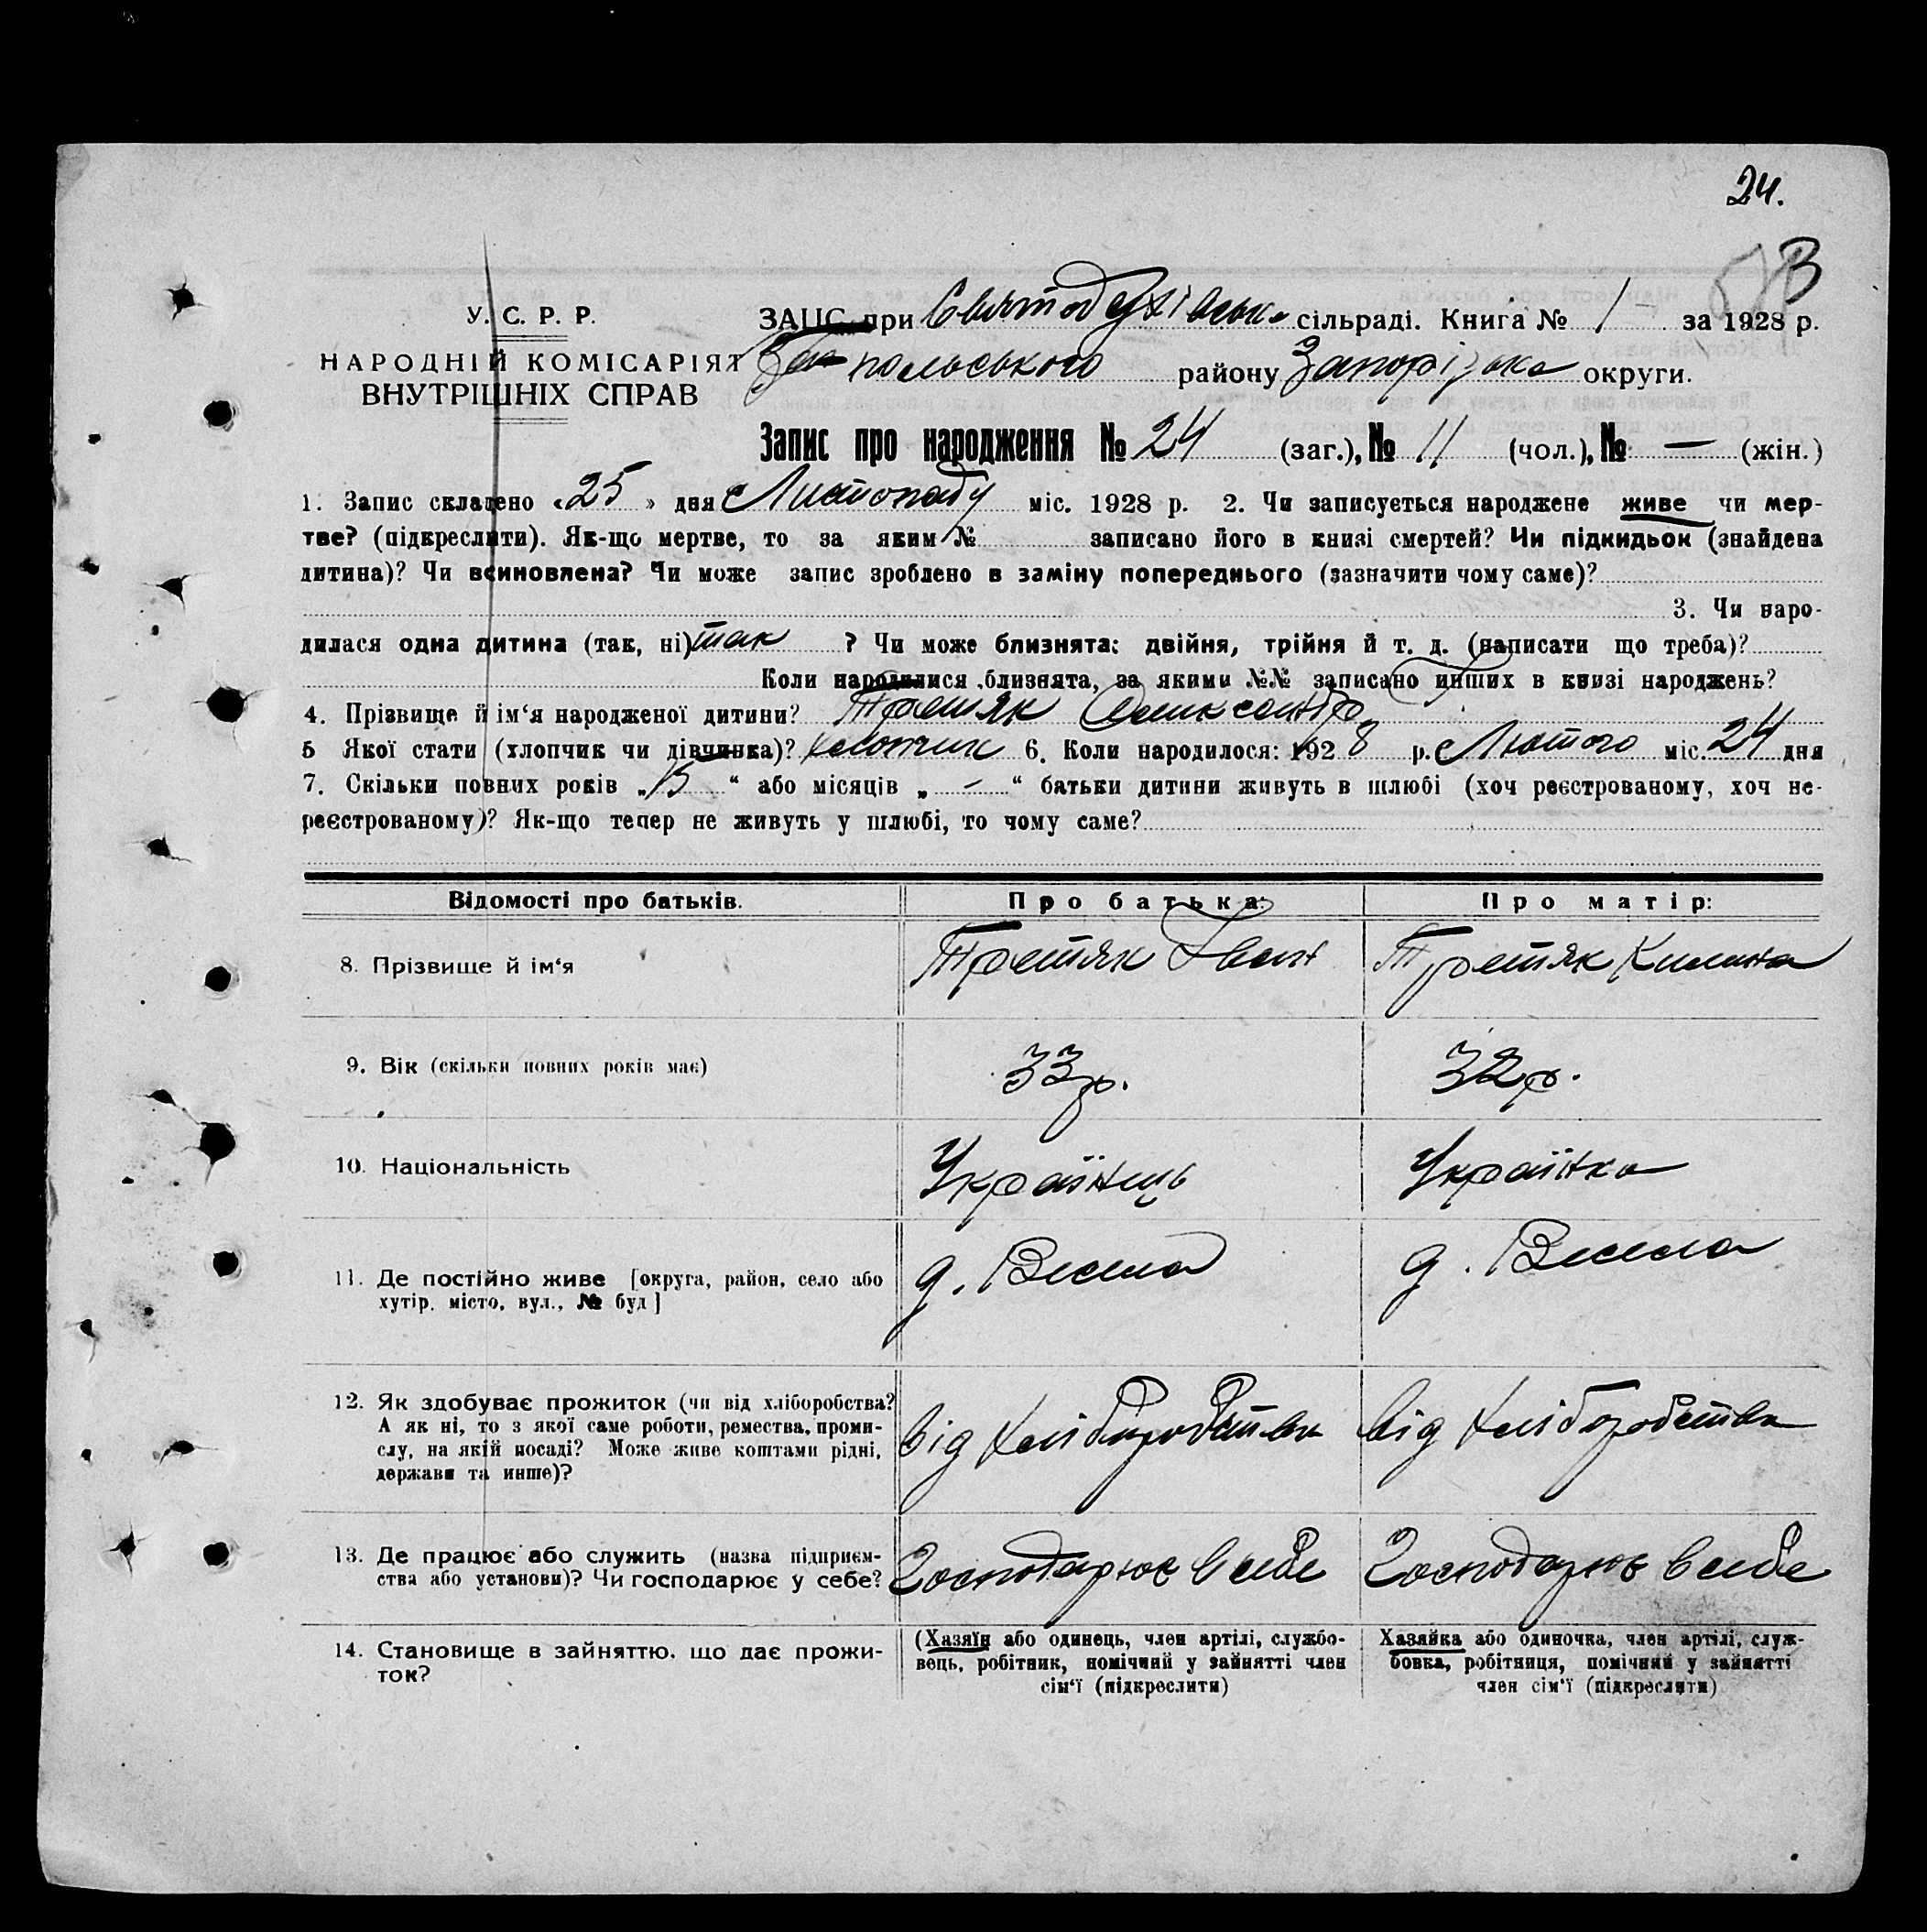 24.
У. С. Р. Р.
НАРОДНІЙ КОМІСАРІЯТ
ВНУТРІШНІХ СПРАВ
ЗАЦС при Святодухівськ сільраді. Книга № 1 - за 1928 р.
польського району Запорізька округи.
Запис про народження № 24 (заг.), № 11 (чол.), № — (жін.)
1. Запис складено «25» дня Листопаду міс. 1928 р. 2. Чи записується народжене живе чи мер-
тве? (підкреслити). Як-що мертве, то за яким № записано його в книзі смертей? Чи підкидьок (знайдена
дитина)? Чи всиновлена? Чи може запис зроблено в заміну попереднього (зазначити чому саме)?
3. Чи наро-
дилася одна дитина (так, ні) так ? Чи може близнята: двійня, трійня й т. д. (написати що треба)?
Коли народилися близнята, за якими №№ записано инших в книзі народжень?
4. Прізвище й ім‘я народженої дитини? Третяк Олександр
5 Якої стати (хлопчик чи дівчинка)? хлопчик 6. Коли народилося: 1928 р. Лютого міс. 24 дня
7. Скільки повних років „15“ або місяців „-“ батьки дитини живуть в шлюбі (хоч реєстрованому, хоч не-
реєстрованому)? Як-що тепер не живуть у шлюбі, то чому саме?
Відомості про батьків. Про батька: Про матір:
8. Прізвище й ім‘я Третяк Іван Третяк Килина
9. Вік (скільки повних років має) 33 р. 32 р.
10. Національність Українець Українка
11. Де постійно живе [округа, район, село або
хутір, місто, вул., № буд]
д. Весела д. Весела
12. Як здобуває прожиток (чи від хліборобства?
А як ні, то з якої саме роботи, ремества, проми-
слу, на якій посаді? Може живе коштами рідні,
держави та инше)?
від хліборобства від хліборобства
13. Де працює або служить (назва підприєм-
ства або установи)? Чи господарює у себе?
Господарює в себе Господарює в себе
14. Становище в зайняттю, що дає прожи-
ток?
(Хазяїн або одинець, член артілі, службо-
вець, робітник, помічний у зайнятті член
сім‘ї (підкреслити)
Хазяйка або одиночка, член артілі, служ-
бовка, робітниця, помічний у зайнятті
член сім‘ї (підкреслити)